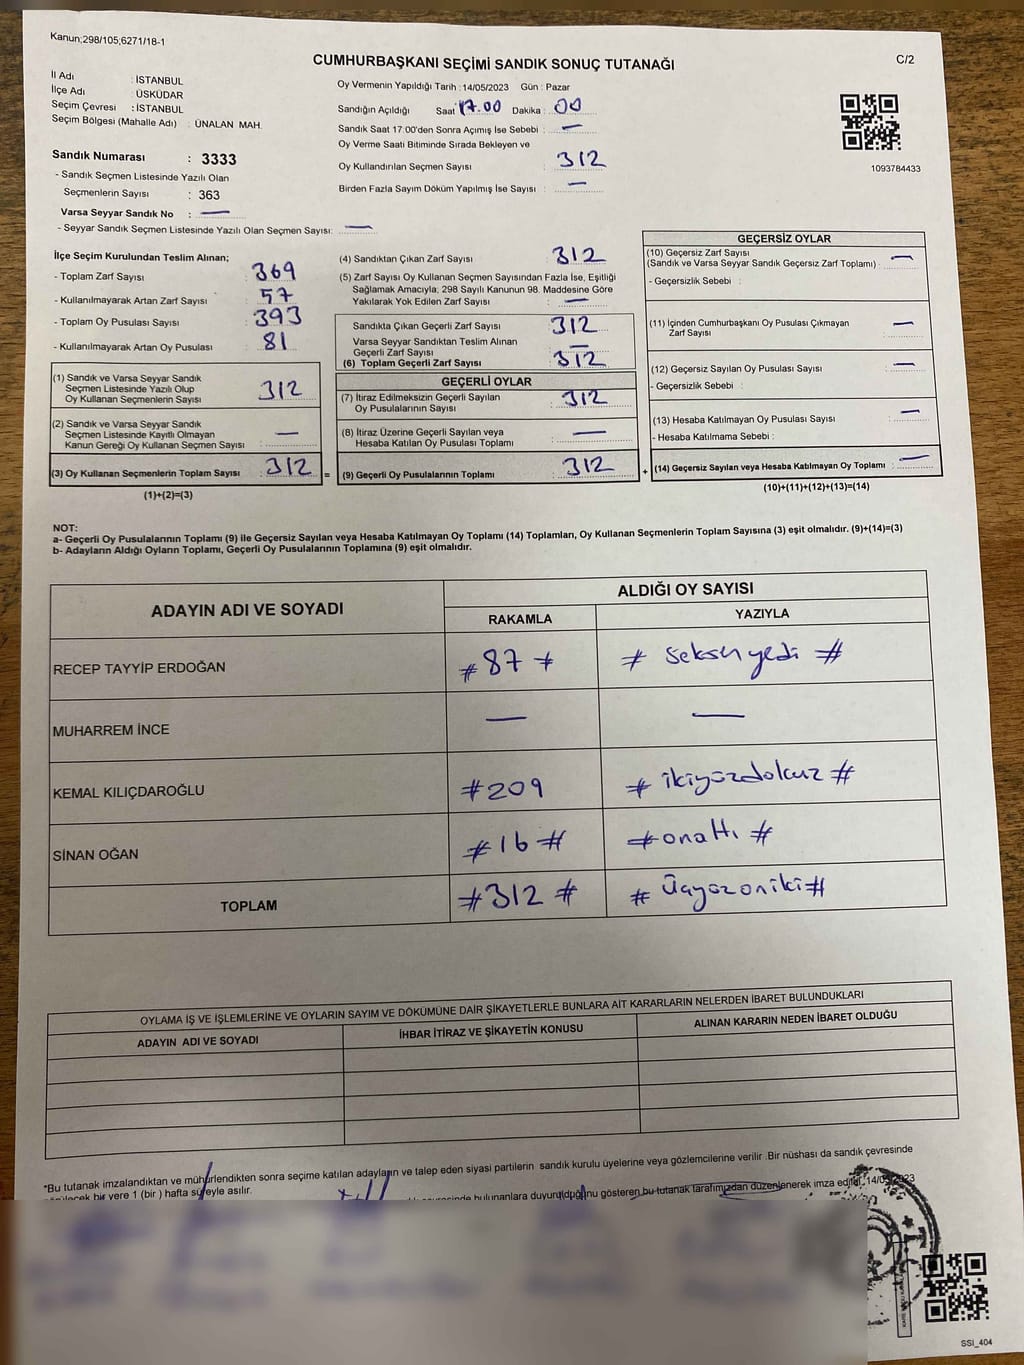 Kanun;298/105;6271/18-1
CUMHURBAŞKANI SEÇİMİ SANDIK SONUÇ TUTANAĞI
C/2
İl Adı : İSTANBUL
İlçe Adı : ÜSKÜDAR
Seçim Çevresi : İSTANBUL
Seçim Bölgesi (Mahalle Adı) : ÜNALAN MAH.
Sandık Numarası : 3333
- Sandık Seçmen Listesinde Yazılı Olan
Seçmenlerin Sayısı : 363
Varsa Seyyar Sandık No : —
- Seyyar Sandık Seçmen Listesinde Yazılı Olan Seçmen Sayısı: —
Oy Vermenin Yapıldığı Tarih : 14/05/2023 Gün : Pazar
Sandığın Açıldığı Saat 17.00 Dakika : 00
Sandık Saat 17:00'den Sonra Açımış İse Sebebi : —
Oy Verme Saati Bitiminde Sırada Bekleyen ve
Oy Kullandırılan Seçmen Sayısı : 312
Birden Fazla Sayım Döküm Yapılmış İse Sayısı : —
1093784433
İlçe Seçim Kurulundan Teslim Alınan;
- Toplam Zarf Sayısı : 369
- Kullanılmayarak Artan Zarf Sayısı : 57
- Toplam Oy Pusulası Sayısı : 393
- Kullanılmayarak Artan Oy Pusulası : 81
(1) Sandık ve Varsa Seyyar Sandık
Seçmen Listesinde Yazılı Olup
Oy Kullanan Seçmenlerin Sayısı : 312
(2) Sandık ve Varsa Seyyar Sandık
Seçmen Listesinde Kayıtlı Olmayan
Kanun Gereği Oy Kullanan Seçmen Sayısı : —
(3) Oy Kullanan Seçmenlerin Toplam Sayısı : 312 =
(1)+(2)=(3)
(4) Sandıktan Çıkan Zarf Sayısı : 312
(5) Zarf Sayısı Oy Kullanan Seçmen Sayısından Fazla İse, Eşitliği
Sağlamak Amacıyla; 298 Sayılı Kanunun 98. Maddesine Göre
Yakılarak Yok Edilen Zarf Sayısı : —
Sandıkta Çıkan Geçerli Zarf Sayısı : 312
Varsa Seyyar Sandıktan Teslim Alınan
Geçerli Zarf Sayısı : —
(6) Toplam Geçerli Zarf Sayısı : 312
GEÇERLİ OYLAR
(7) İtiraz Edilmeksizin Geçerli Sayılan
Oy Pusulalarının Sayısı : 312
(8) İtiraz Üzerine Geçerli Sayılan veya
Hesaba Katılan Oy Pusulası Toplamı : —
(9) Geçerli Oy Pusulalarının Toplamı : 312 +
GEÇERSİZ OYLAR
(10) Geçersiz Zarf Sayısı
(Sandık ve Varsa Seyyar Sandık Geçersiz Zarf Toplamı) : —
- Geçersizlik Sebebi :
(11) İçinden Cumhurbaşkanı Oy Pusulası Çıkmayan
Zarf Sayısı : —
(12) Geçersiz Sayılan Oy Pusulası Sayısı : —
- Geçersizlik Sebebi :
(13) Hesaba Katılmayan Oy Pusulası Sayısı : —
- Hesaba Katılmama Sebebi :
(14) Geçersiz Sayılan veya Hesaba Katılmayan Oy Toplamı : —
(10)+(11)+(12)+(13)=(14)
NOT:
a- Geçerli Oy Pusulalarının Toplamı (9) ile Geçersiz Sayılan veya Hesaba Katılmayan Oy Toplamı (14) Toplamları, Oy Kullanan Seçmenlerin Toplam Sayısına (3) eşit olmalıdır. (9)+(14)=(3)
b- Adayların Aldığı Oyların Toplamı, Geçerli Oy Pusulalarının Toplamına (9) eşit olmalıdır.
ADAYIN ADI VE SOYADI ALDIĞI OY SAYISI
RAKAMLA YAZIYLA
RECEP TAYYİP ERDOĞAN #87# # Seksen yedi #
MUHARREM İNCE — —
KEMAL KILIÇDAROĞLU #209 # ikiyüzdokuz #
SİNAN OĞAN #16# #onaltı #
TOPLAM #312# # Üçyüzoniki#
OYLAMA İŞ VE İŞLEMLERİNE VE OYLARIN SAYIM VE DÖKÜMÜNE DAİR ŞİKAYETLERLE BUNLARA AİT KARARLARIN NELERDEN İBARET BULUNDUKLARI
ADAYIN ADI VE SOYADI İHBAR İTİRAZ VE ŞİKAYETİN KONUSU ALINAN KARARIN NEDEN İBARET OLDUĞU
*Bu tutanak imzalandıktan ve mühürlendikten sonra seçime katılan adayların ve talep eden siyasi partilerin sandık kurulu üyelerine veya gözlemcilerine verilir .Bir nüshası da sandık çevresinde
bir yere 1 (bir ) hafta süreyle asılır.
bulunanlara duyurulduğunu gösteren bu tutanak tarafımızdan düzenlenerek imza edildi. 14/05/2023
SSİ_404